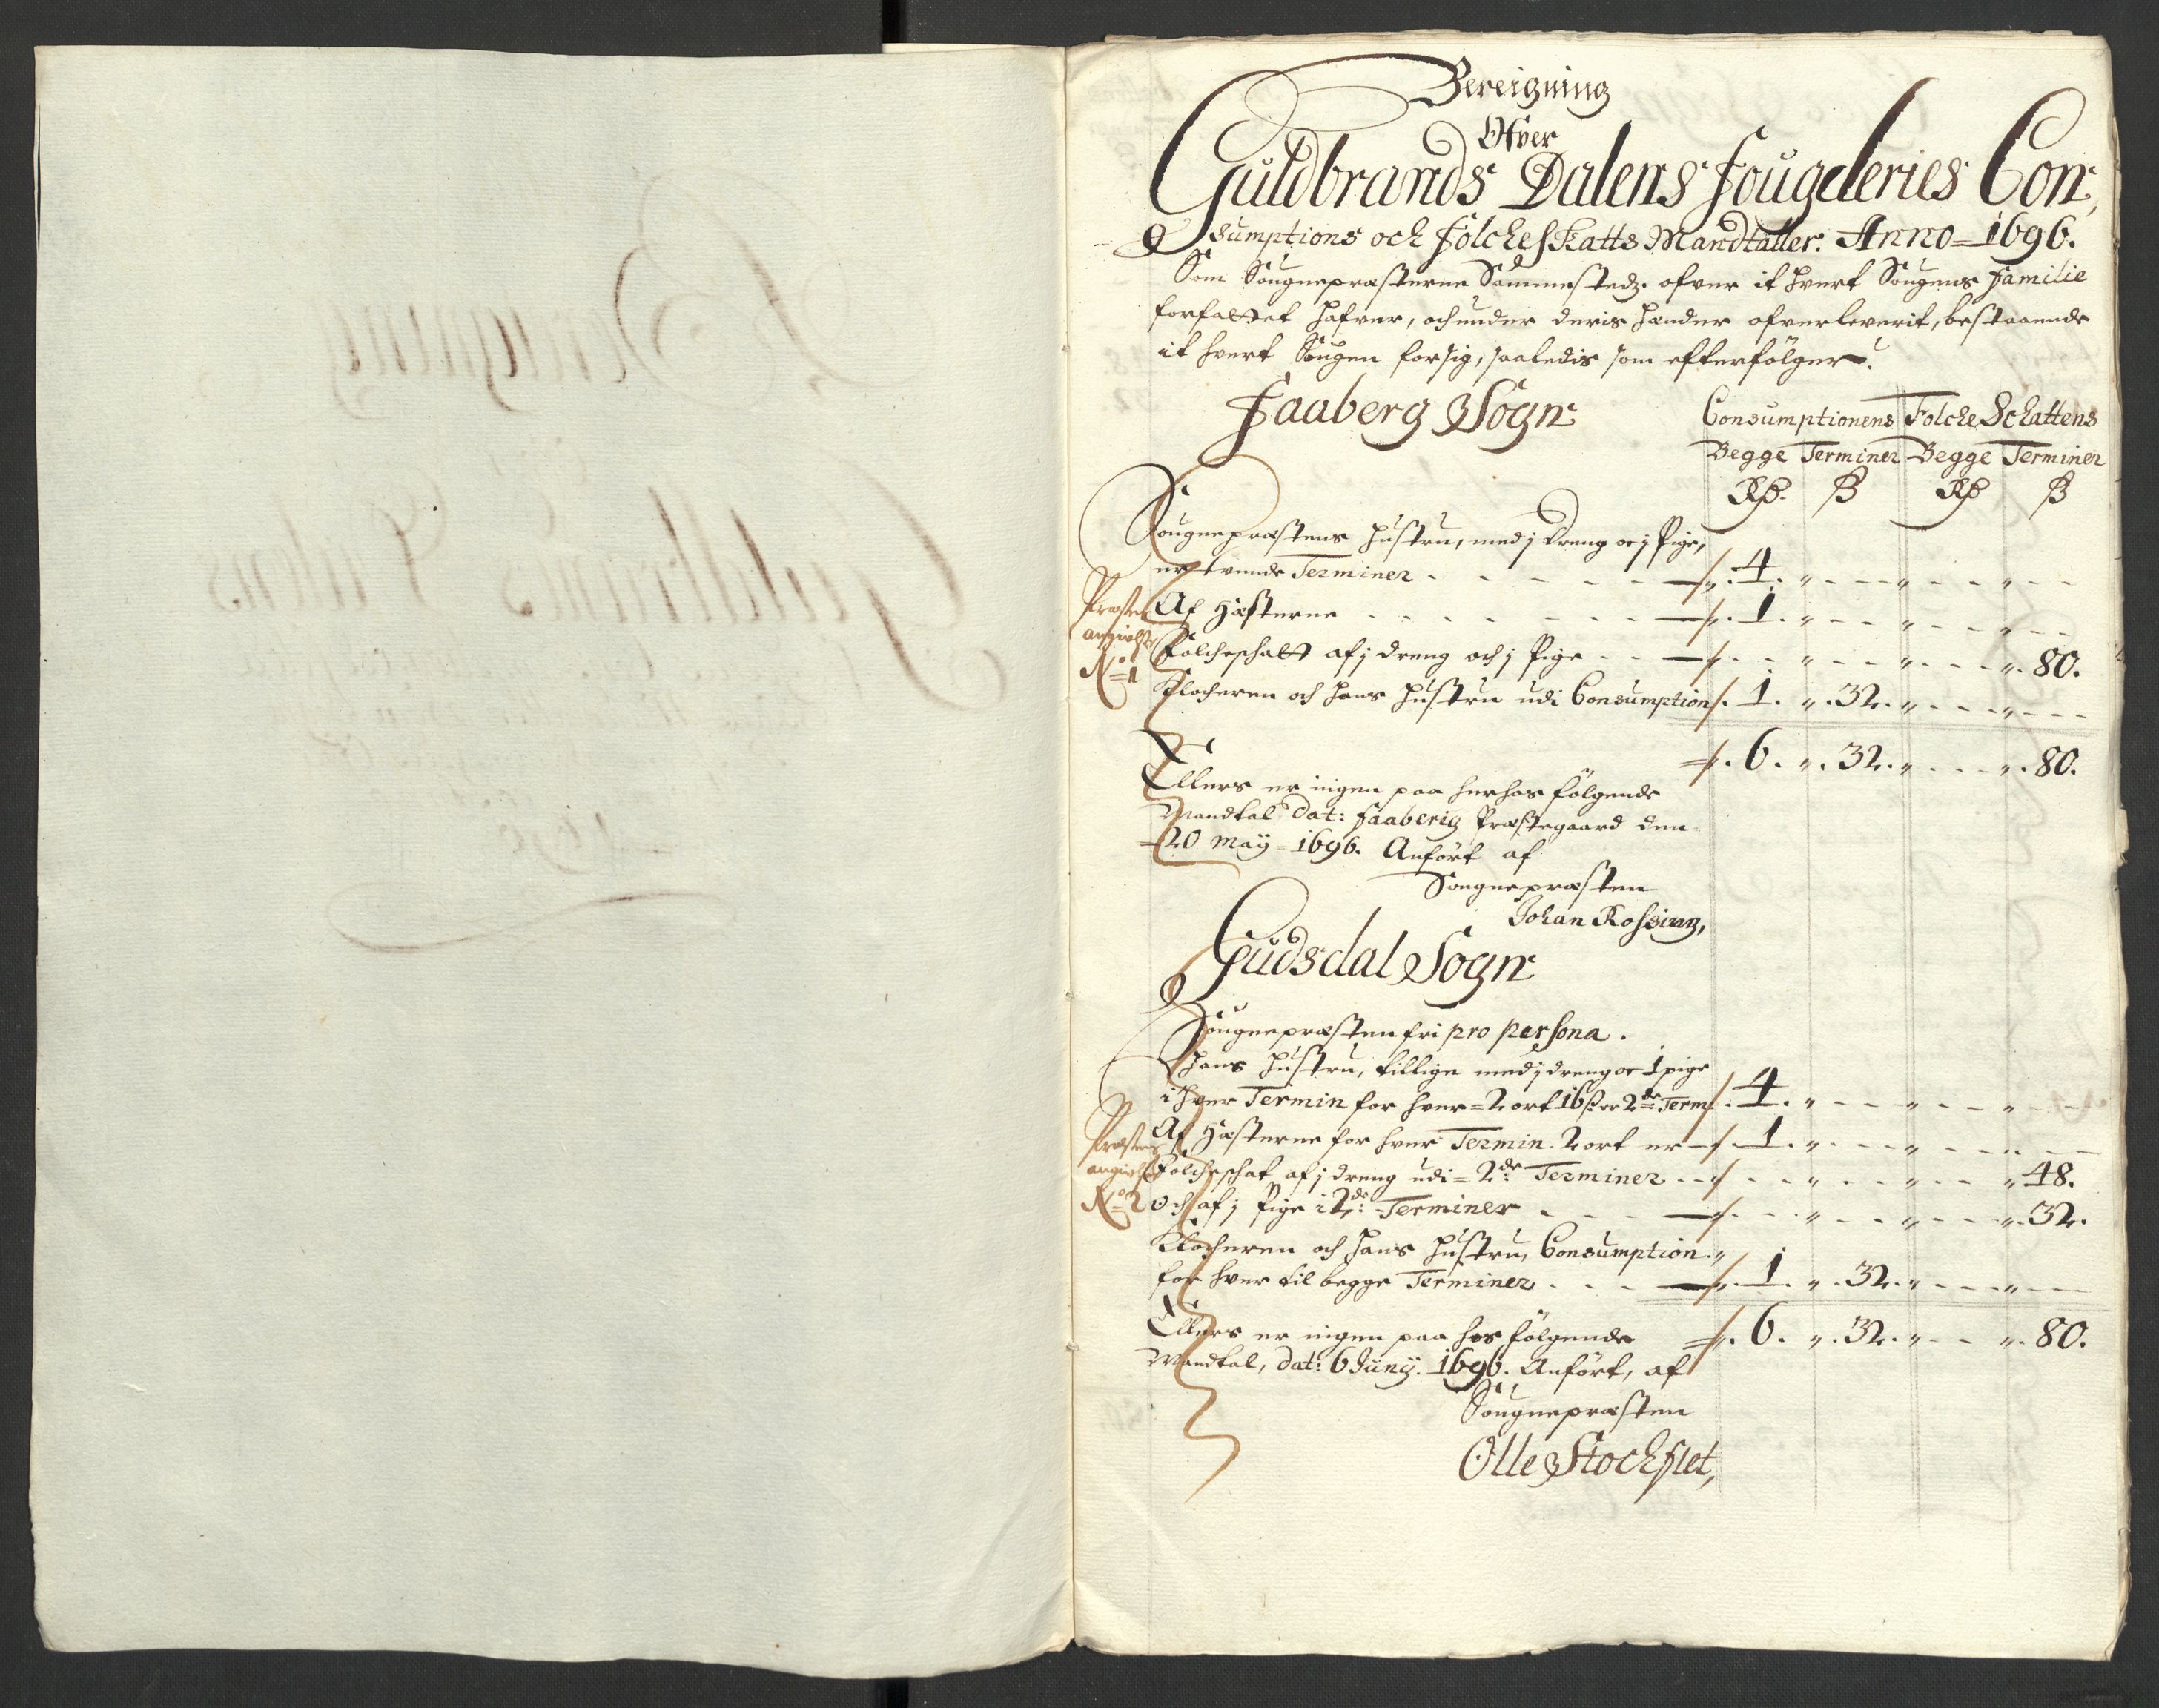 Bereigning
Ofver
Guldbrands Dalens fougderies Con,
sumptions och folcheskatts Mandtaller. Anno=1696.
Som Sougnepræsterne Sammestedz. ofver it hvert Sougens familie
forfattet hafver, och under deris hænder ofverleverit, bestaaende
it hvert Sougen forsig, saaledis som efterfölger.
Faaberg Sogn
Consumptionens Folche Schattens
Begge Terminer Begge Terminer
Rd. ß Rd ß
Sougnepræstens hustru, med j dreng oc j Pige,
er tvende Terminer - - - - - - 4. " - - - " - - " - -
Præstens angivelse No 1
Af Hæsterne - - - - - - - 1. " - - - " - - " - -
Folcheschatt af j dreng och j Pige - - - - - " - - " - - - " 80.
Klocheren och hans hustru udi Consumption 1. " 32. " - - - " - - -
6. " 32. " - - - " 80.
Ellers er ingen paa herhos fölgende
Mandtal dat: faaberig Præstegaard den
20 maij 1696. Anfört af
Sougnepræsten
Johan Rossing,
Gudsdal Sogn
Sougnepræsten fri pro persona.
Hans hustru, tillige med j dreng oc 1 pige
i hver Termin for hver = 2 ort 16 ß er 2de Term: 4. " - - - " - - " - -
Præstens angivelse No 2
Af Hæsterne for hver Termin. 2 ort er 1. " - - - " - - - " - -
Folcheschat af j dreng udi = 2de Terminer - - " - - " - - " 48.
och af j Pige i 2de: Terminer - - - - - " - - " - - " 32.
Klocheren och hans hustru, Consumption
for hver til begge Terminer - - - 1. " 32. " - - - " - -
6. " 32. " - - " 80.
Ellers er ingen paa hos fölgende
Mandtal, dat: 6 Junij. 1696. Anfört, af
Sougnepræsten
Olle Stochflet,